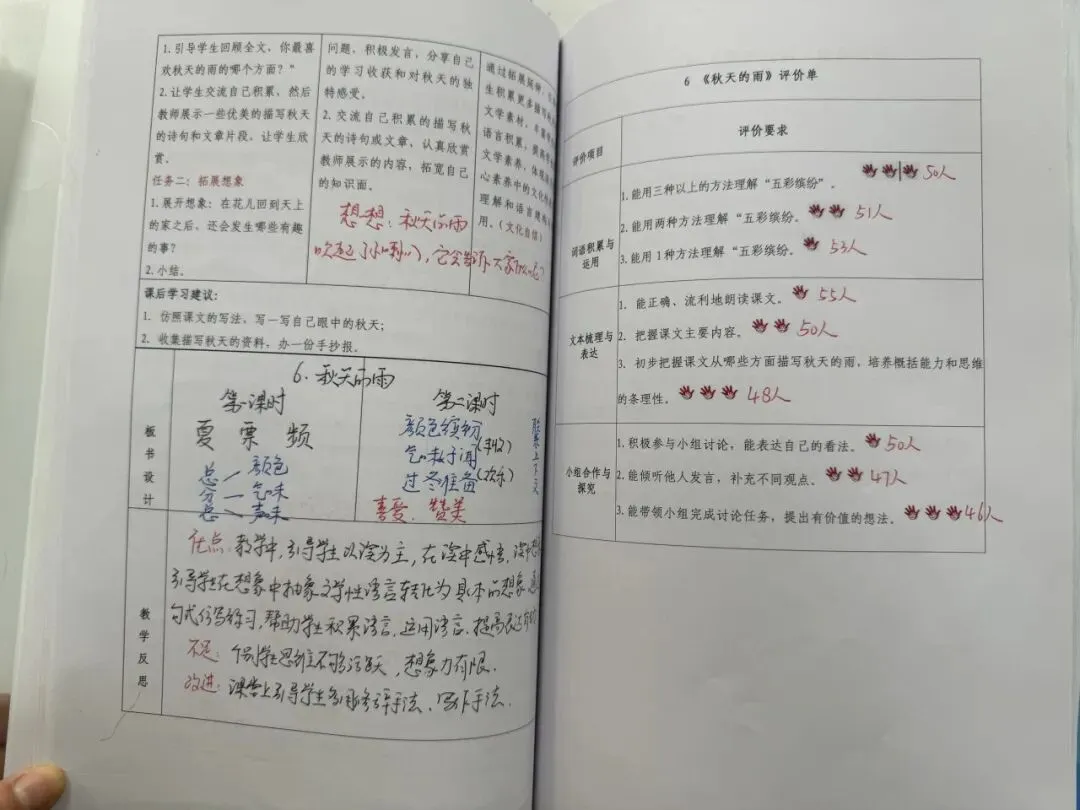 1.引导学生回顾全文，你最喜
欢秋天的雨的哪个方面？”
2.让学生交流自己积累、然后
教师展示一些优美的描写秋天
的诗句和文章片段，让学生欣
赏。
任务二：拓展想象
1.展开想象：在花儿回到天上
的家之后，还会发生哪些有趣
的事？
2.小结。
问题，积极发言，分享自己
的学习收获和对秋天的独
特感受。
2.交流自己积累的描写秋
天的诗句或文章、认真欣赏
教师展示的内容，拓宽自己
的知识面。
想一想：秋天的雨
吹起了小喇叭，它会告诉大家
通过拓展延伸，
生积累更多描写
文学素材，丰富
语言积累，提高
文学素养，体现
心素养中的文化
理解和语言建构
用。（文化自信）
课后学习建议：
1. 仿照课文的写法，写一写自己眼中的秋天；
2. 收集描写秋天的资料，办一份手抄报。
板书设计
6.秋天的雨
第一课时
夏 票 频
总 颜色
分 气味
总 声味
第二课时
颜色缤纷
气味好闻
过冬准备(欢乐)
喜爱、赞美
教学反思
优点:教学中，引导学生以读为主，在读中感悟，读中想
引导学生在想象中抽象文学性语言转化为具体的想象
句式仿写练习,帮助学生积累语言,运用语言.提高表达
不足: 个别学生思维不够活跃，想象力有限.
改进: 课堂上引导学生多用修辞手法、写作手法.
6 《秋天的雨》评价单
评价项目
评价要求
词语积累与运用
1.能用三种以上的方法理解“五彩缤纷”。 50人
2.能用两种方法理解“五彩缤纷。 51人
3.能用1种方法理解“五彩缤纷。 53人
文本梳理与表达
1. 能正确、流利地朗读课文。 55人
2. 把握课文主要内容。 50人
3. 初步把握课文从哪些方面描写秋天的雨，培养概括能力和思维
的条理性。 48人
小组合作与探究
1.积极参与小组讨论，能表达自己的看法。 50人
2.能倾听他人发言，补充不同观点。 47人
3.能带领小组完成讨论任务，提出有价值的想法。 46人